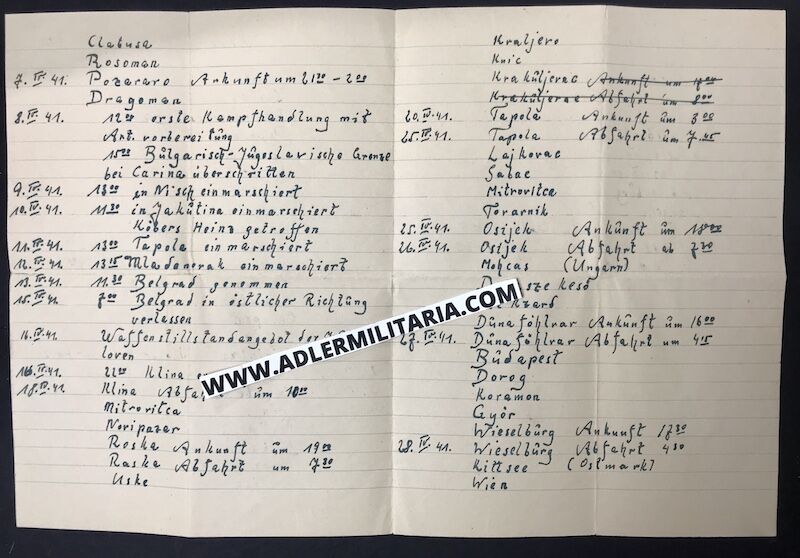 Clabusa
Rosoman
7. IV. 41. Pozararo Ankunft um 21 20 - 2 00
Dragoman
8. IV. 41. 12 00 erste Kampfhandlung mit
Art. vorbereitung
15 00 Bulgarisch-Jugoslavische Grenze
bei Carina überschritten
9. IV. 41. 18 00 in Nisch einmarschiert
10. IV. 41. 11 30 in Jakutina einmarschiert
Köbers Heinz getroffen
11. IV. 41. 13 00 Tapola einmarschiert
12. IV. 41. 13 15 Mladenovak einmarschiert
13. IV. 41. 11.30 Belgrad genommen
15. IV. 41. 7 00 Belgrad in östlicher Richtung
verlassen
16. IV. 41. Waffenstillstandangebot der
loven
16. IV. 41. 22 00 Klina
18. IV. 41. Klina um 10 00
Mitrovitca
Noripazar
Raska Ankunft um 19 00
Raska Abfahrt um 7 30
Uske
Kraljero
Knic
Kraküljerac Ankunft um 17 00
Kraküljerac Abfahrt um 8 00
20. IV. 41. Tapola Ankunft um 3 00
25. IV. 41. Tapola Abfahrt um 7.45
Lajkovac
Sabac
Mitrovitca
Torarnik
25. IV. 41. Osijek Ankunft um 18 00
26. IV. 41. Osijek Abfahrt ab 7 30
Mohcas (Ungarn)
Dunaföhlvar Ankunft um 16 00
27. IV. 41. Dunaföhlvar Abfahrt um 4 15
Budapest
Dorog
Koramon
Györ
Wieselburg Ankunft 17 30
28. IV. 41. Wieselburg Abfahrt 4 30
Kittsee (Ostmark)
Wien
WWW.ADLERMILITARIA.COM